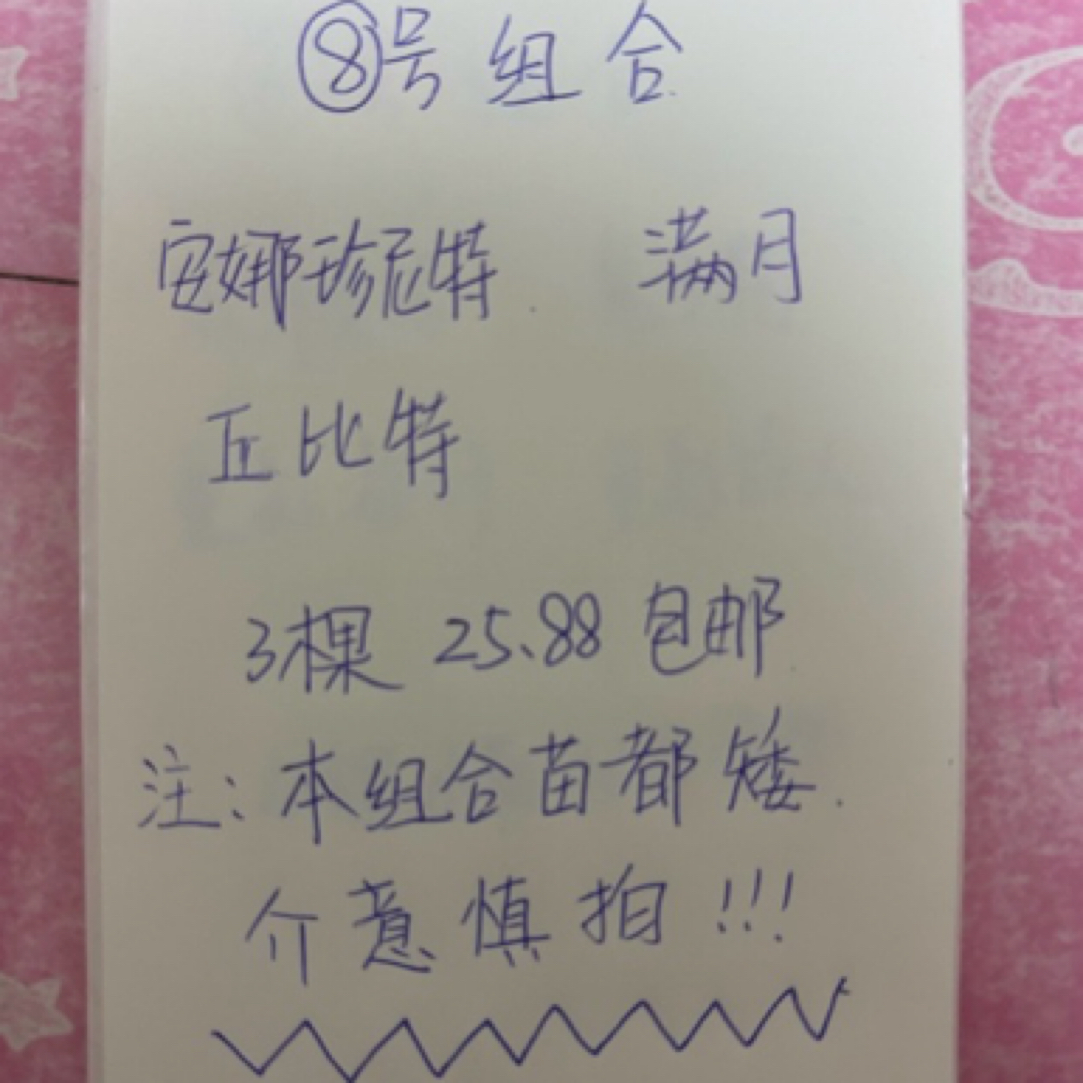 ⑧号组合
安娜珍尼特. 满月
丘比特
3棵 25.88 包邮.
注: 本组合苗都矮.
介意慎拍!!!